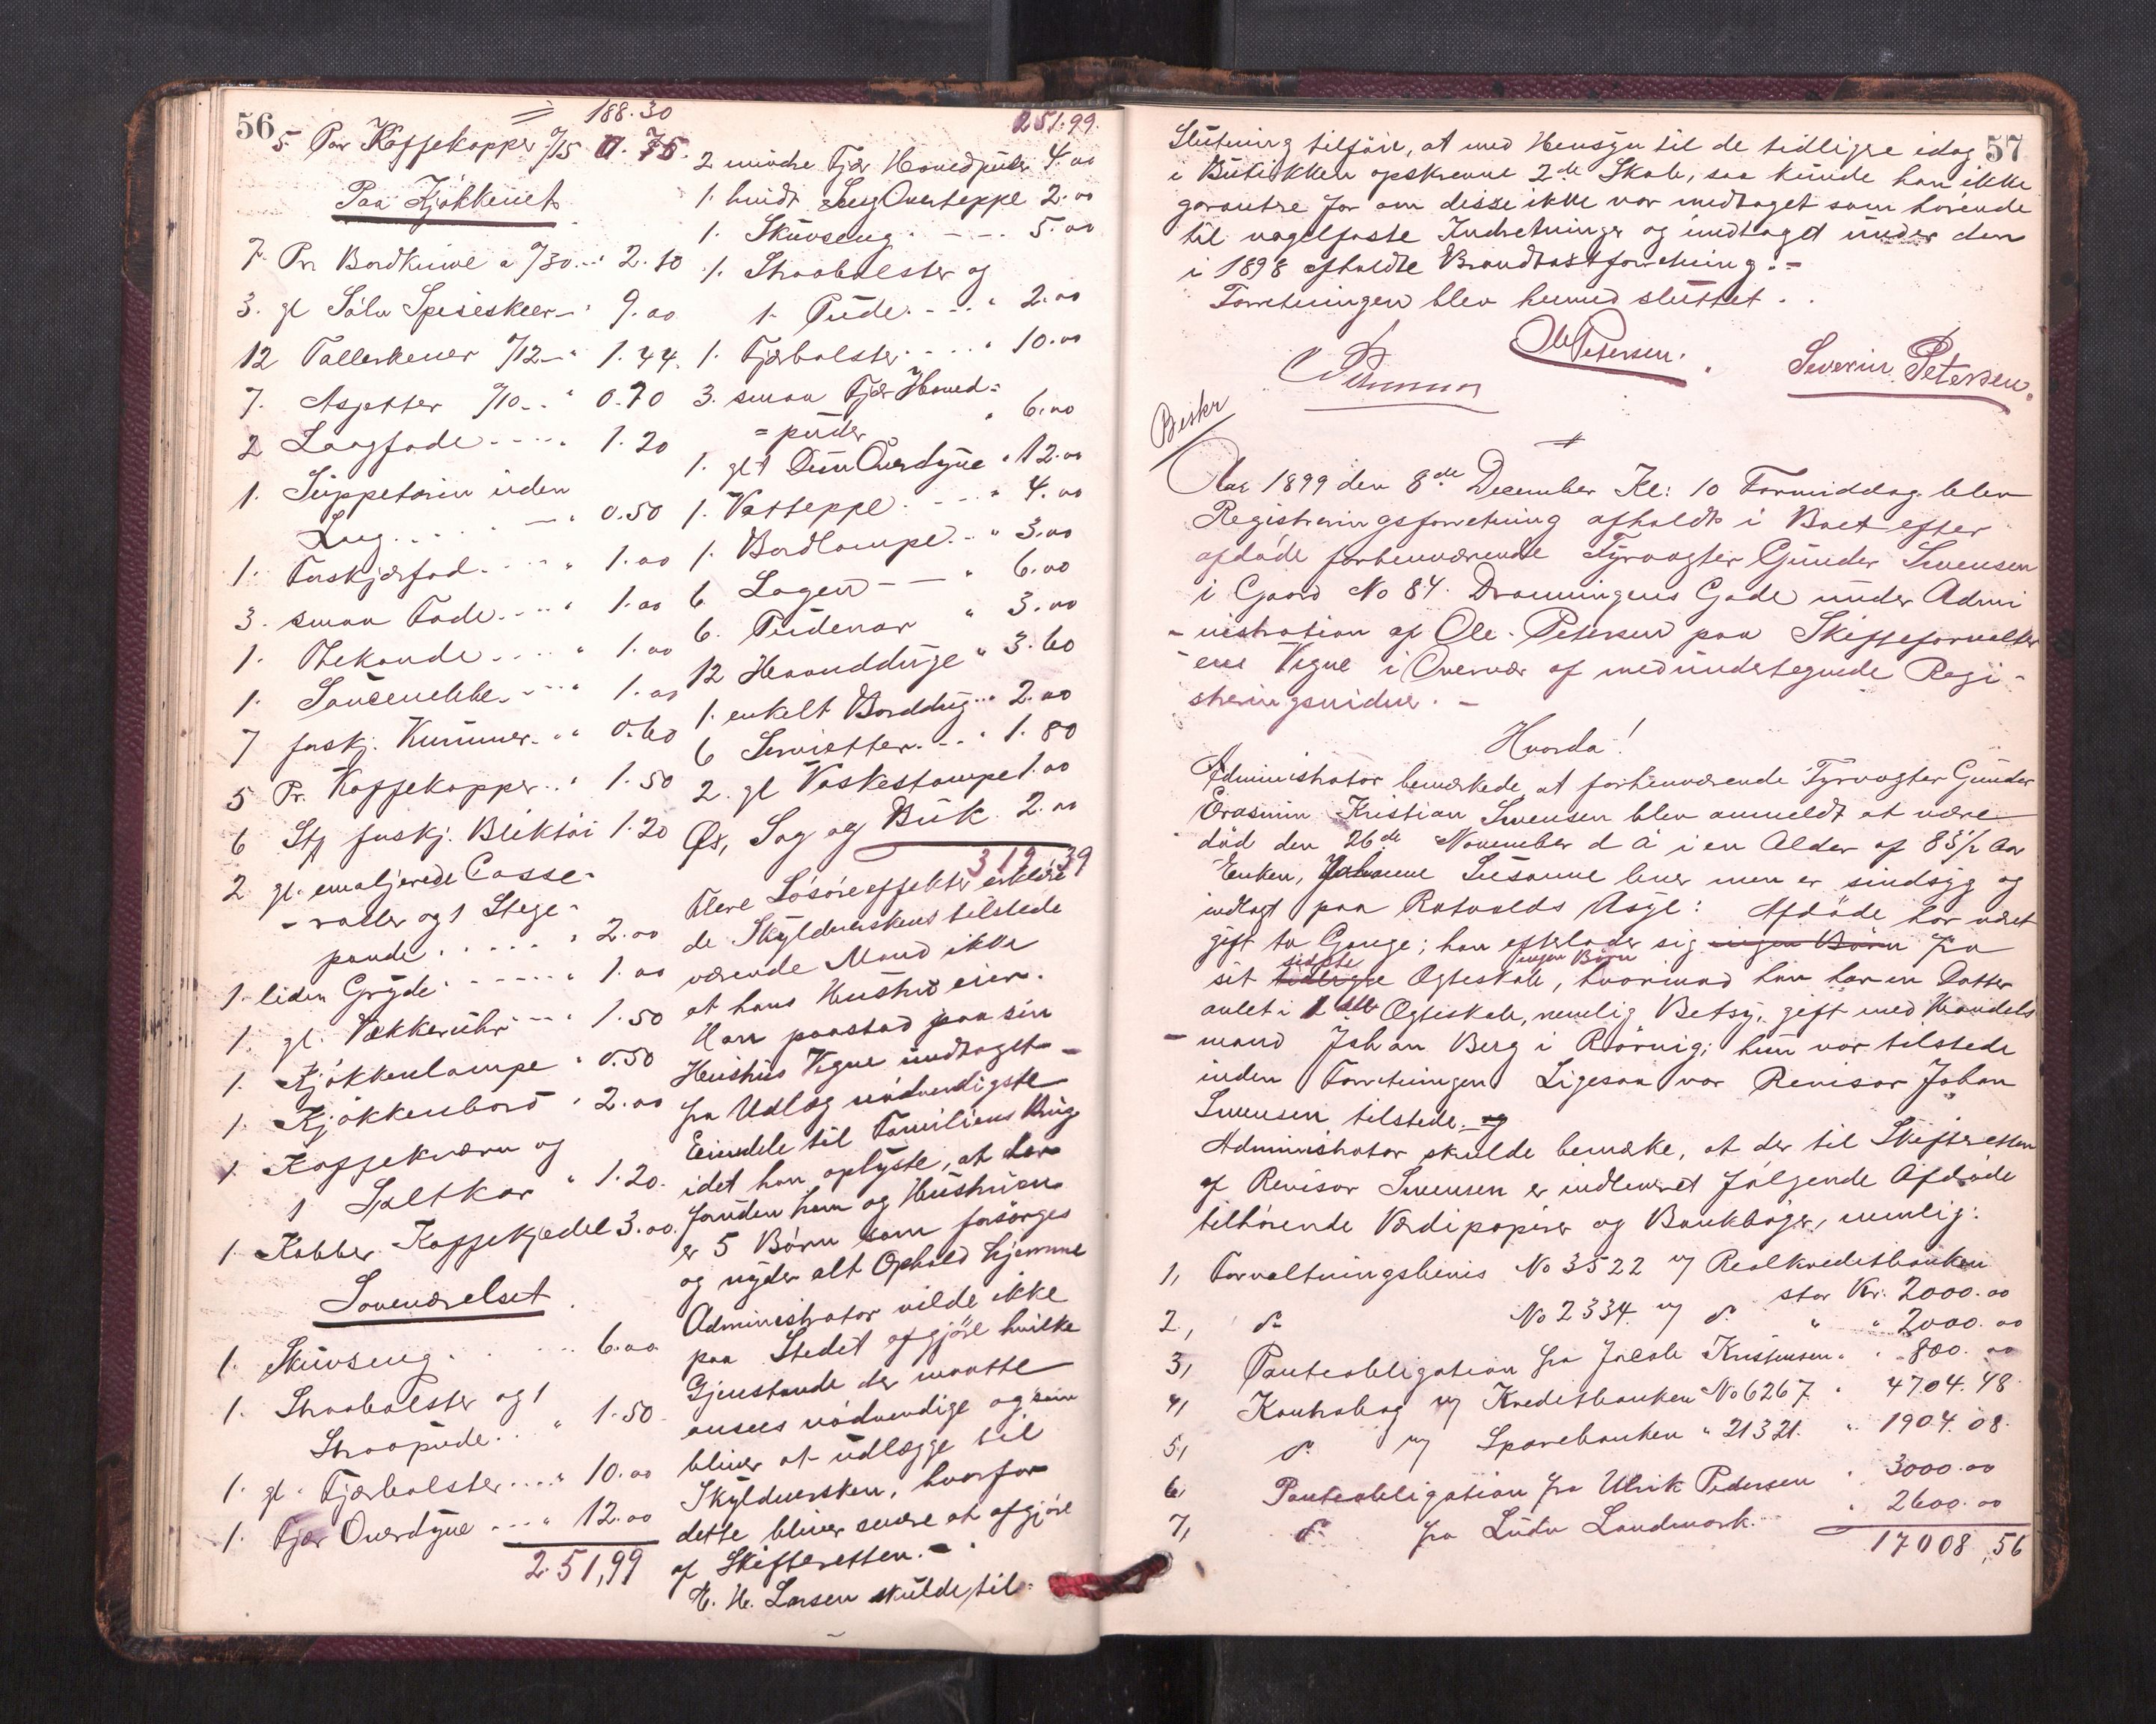 56
188.30
5 Par Kaffekopper a/15 0.75.
Paa Kjøkkenet
7 Par Bordknive a /30 .. 2.10
3. gl Sølv Spiseskeer - " 9.00
12 Tallerkener a/12 - " 1.44.
7. Asjetter a/10 .. " 0.70
2 Laagfade - - - " 1.20
1. Suppeterin uden
Laag. . . . - " 0.50
1. Fiskjærfad - - - " 1.00
3. smaa Fade. - - " 1.00
1. Thekande. - - - " 1.00
1. Saucenebbe. - - - " 1.00
7 forskj. Kummer. - " 0.60
5 Pr. Kaffekopper .. " 1.50
6 Stk forskj. Bliktøi 1.20
2 gl. emaljerede Casse-
- roller og 1 Stege-
pande. . . . . . " 2.00
1. liden Gryde. - - - - " 1.00
1. gl. Vækkeruhr - - " 1.50
1. Kjøkkenlampe " 0.50
1. Kjøkkenbord " 2.00
1. Kaffekværn og
1 Saltkar " 1.20.
1 Kobber Kaffekjedel 3.00.
Soveværelset
1. Skuvseng. . . - - - 6.00
1. Straabolster og 1
Straapude. . " 1.50
1. gl. Fjærbolster .... " 10.00
1. Fjær Overdyne - - - " 12.00
251,99
251.99.
2 mindre Fjær Hovedpuder 4.00
1. hvidt Seng Overteppe 2.00
1. Skuvseng. - - - . 5.00
1. Straabolster og
1. Pude. - - .. " 2.00
1. Fjærbolster. - - . . " 10.00
3. smaa Fjær Hoved=
= puder " 6.00
1. glt Dun Overdyne " 12.00
1. Vatteppe. - - - " 4.00
1. Bordlampe. - " 3.00
6 Lagen - - - " 6.00
6. Pudevar " 3.00
12 Haandduge " 3.60
1. enkelt Borddug ... 2.00
6 Servietter. - .. " 1.80
2. gl Vaskestampe 1.00
Øx, Sag og Buk. 2.00
319.39
Flere Løsøreeffekter erklære
de Skyldnerskens tilstede
værende Mand ikke
at hans Hustru eier.
Han paastod paa sin
Hustrus Vegne undtaget -
fra Udlæg nødvendigste
Eiendele til Familiens Brug
idet han oplyste, at der
foruden ham og Hustruen
er 5 Børn som forsørges
og nyder alt Ophold hjemme
Administrator vilde ikke
paa Stedet afgjøre hvilke
Gjenstande der maatte
ansees nødvendige og som
bliver at udlægge til
Skyldnersken, hvorfor
dette bliver senere at afgjøre
af Skifteretten. -
H. H. Larsen skulde til-
57
Slutning tilføie, at med Hensyn til de tidligere idag
i Butikken opskrevne 2de Skabe, saa kunde han ikke
garantere for om disse ikke var medtaget som hørende
til nagelfaste Indretninger og indtaget under den
i 1898 afholdte Brandtaxtforretning. -
Forretningen blev hermed sluttet. .
Ole Petersen.
Severin Petersen.
Beskr
Aar 1899 den 8de December Kl: 10 Formiddag blev
Registreringsforretning afholdt i Boet efter
afdøde forhenværende Fyrvogter Gunder Svensen
i Gaard No 84. Dronningens Gade under Admi
- nistration af Ole Petersen paa Skifteforvalter
- ens Vegne i Overvær af medundertegnede Regi-
streringsvidner. -
Hvorda!
Administrator bemærkede, at forhenværende Fyrvogter Gunder
Erasmin Kristian Svensen blev anmeldt at være
død den 26de November d A i en Alder af 85 1/2 Aar
Enken, Susanne lever men er sindsyg og
indlagt paa Rotvolds Asyl: Afdøde har været
gift to Gange; han efterlader sig ingen Børn fra
sidste ingen Børn
sit tidligere Ægteskab, hvorimod han har en Datter
avlet i 1ste Ægteskab, nemlig Betsy, gift med Handels
- mand Johan Berg i Rørvig; hun var tilstede
under Forretningen Ligesaa var Revisor Johan
Svensen tilstede. og
Administrator skulde bemærke, at der til Skifteretten
af Revisor Svensen er indleveret følgende Afdøde
tilhørende Værdipapirer og Bankbøger, nemlig:
1, Forvaltningsbevis No 3522 m/ Realkreditbanken
stor Kr. 2000.00
2, do No 2334. m/ do " " 2000.00
3, Panteobligation fra Jacob Kristensen. " 800.00
4, Kontrabog m/ Kreditbanken No 6267. " 4704.48
5, do m/ Sparebanken " 21321. " 1904.08.
6, Panteobligation fra Ulrik Pedersen " 3000.00
7, do fra Ludv Landmark. " 2600.00
17008,56